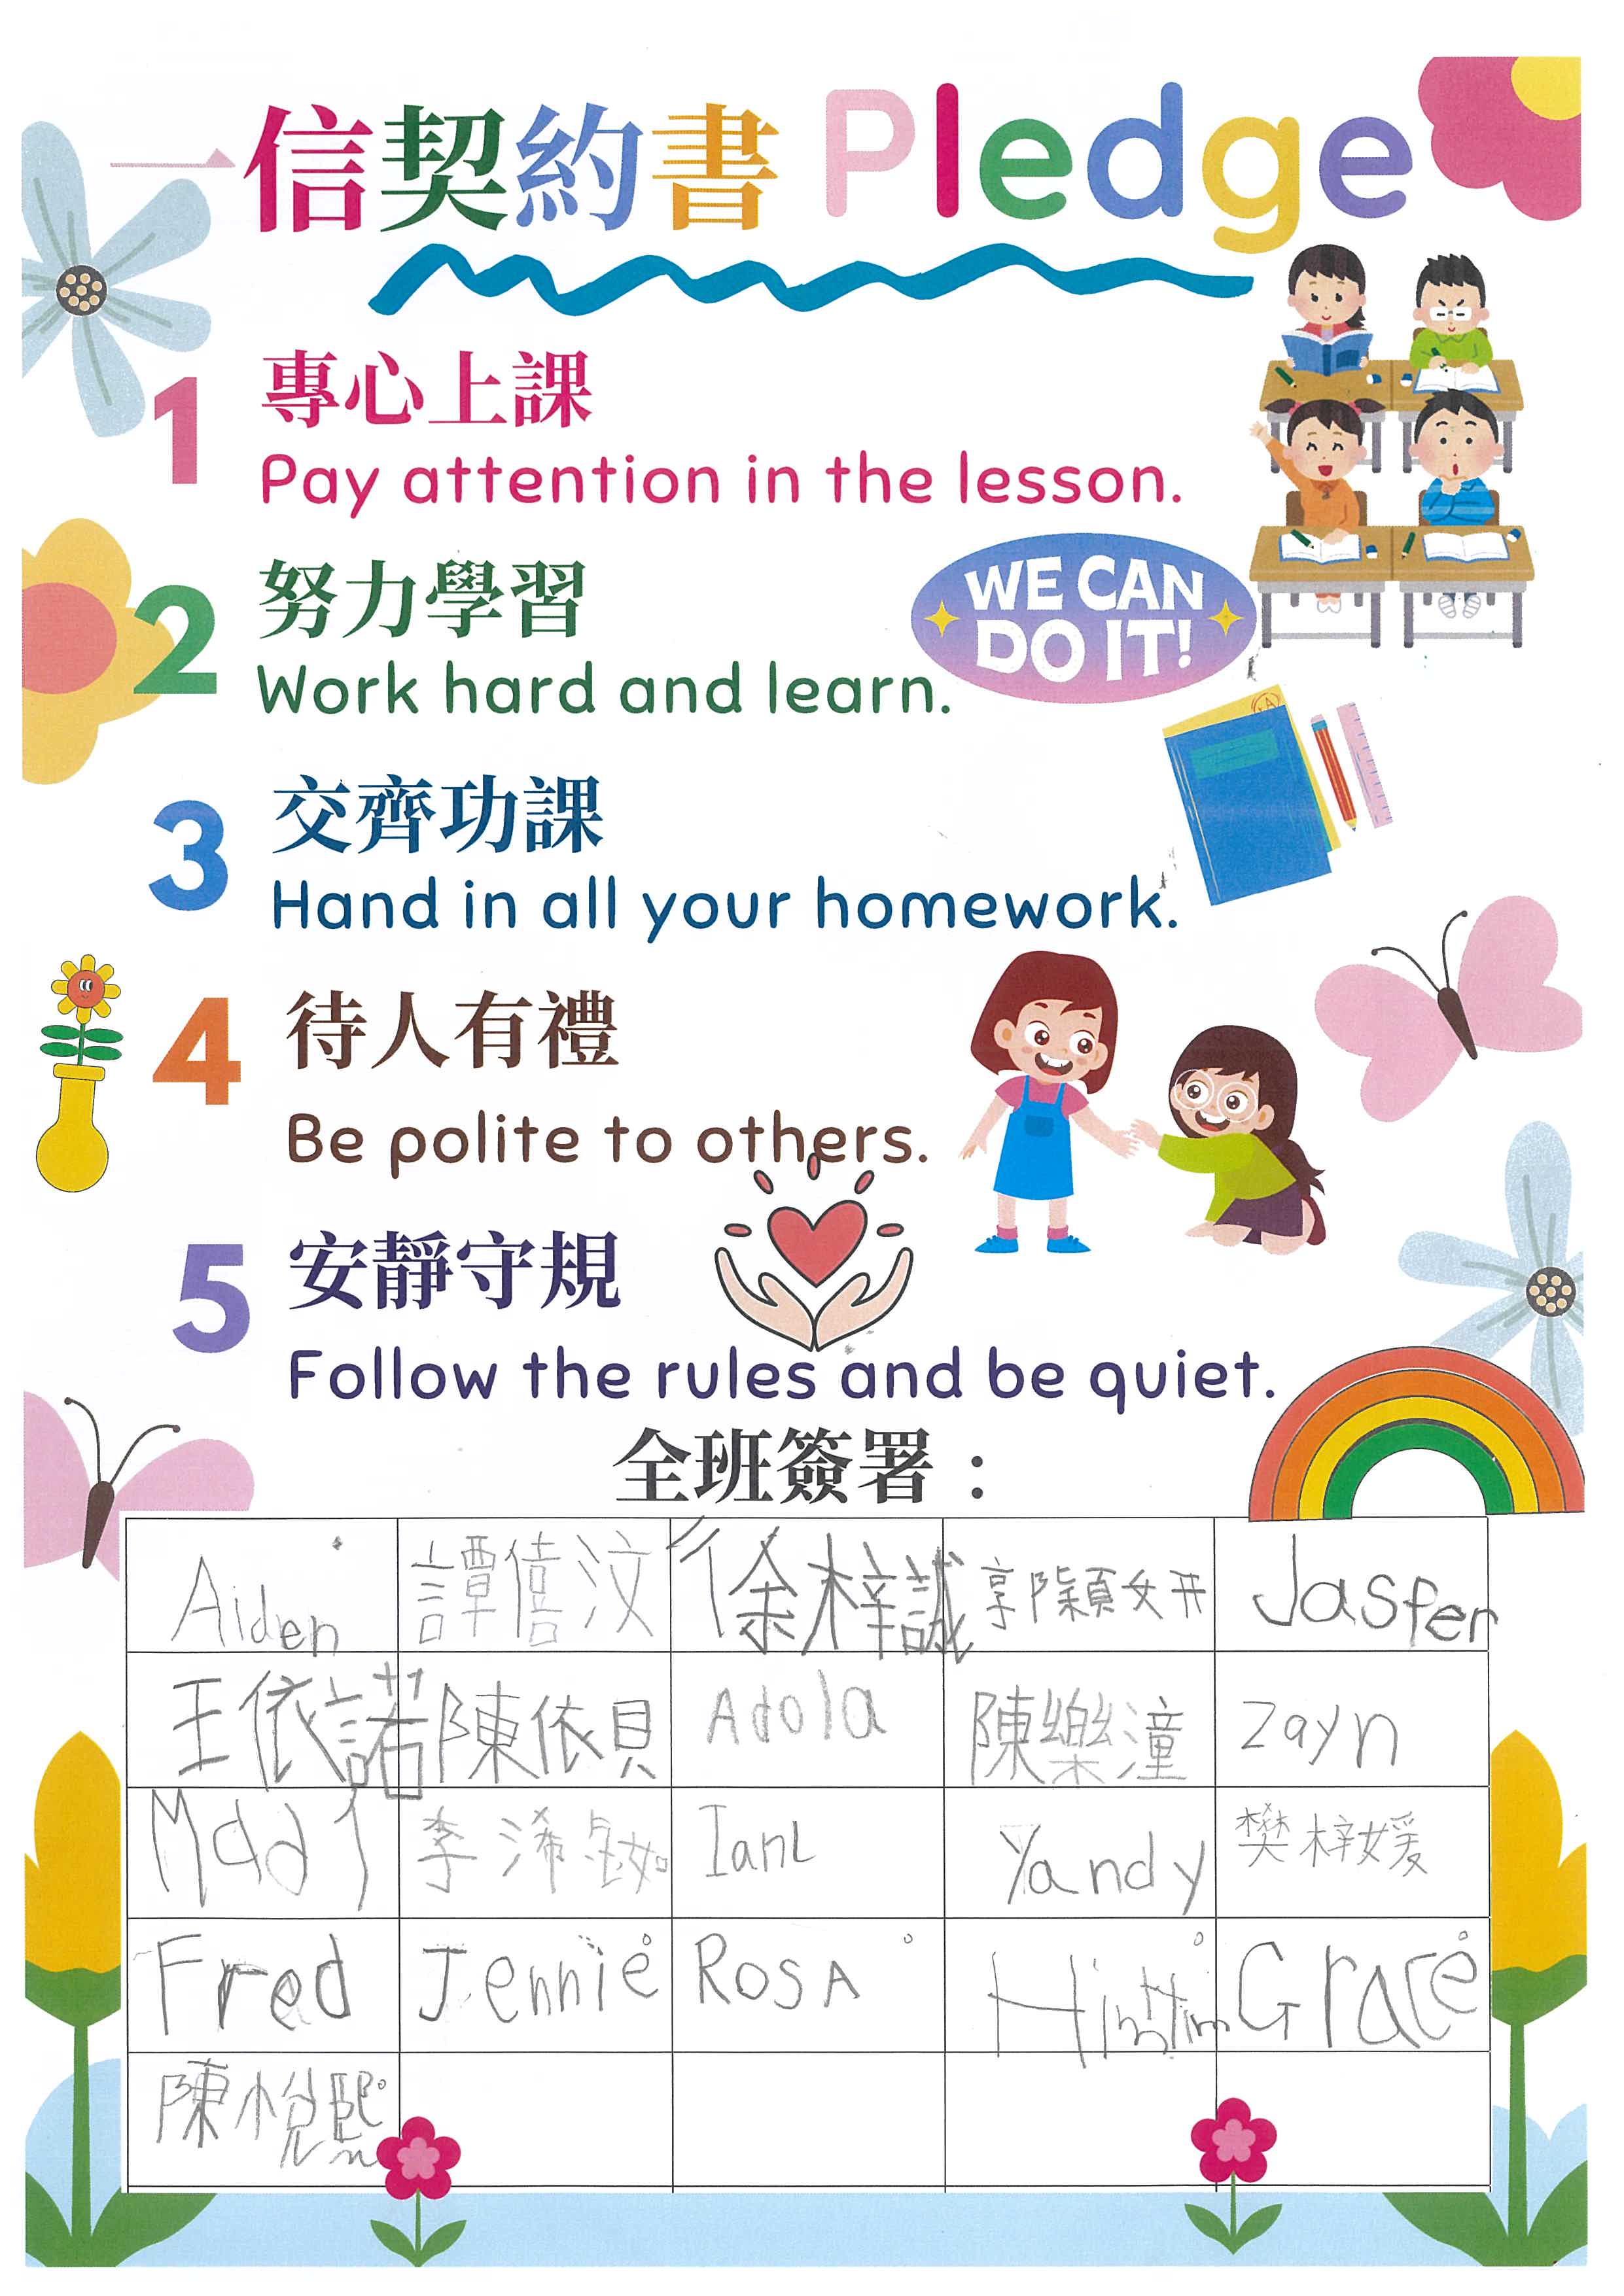 一信契約書 Pledge
1 專心上課
Pay attention in the lesson.
2 努力學習
Work hard and learn.
WE CAN
DO IT!
3 交齊功課
Hand in all your homework.
4 待人有禮
Be polite to others.
5 安靜守規
Follow the rules and be quiet.
全班簽署：
Aiden 譚僖汶 徐梓誠 Jasper
王依諾 陳依貝 Adola 陳樂潼 Zayn
李浠 IanL Yandy 樊梓媛
Fred Jennie ROSA Grace
陳悅熙